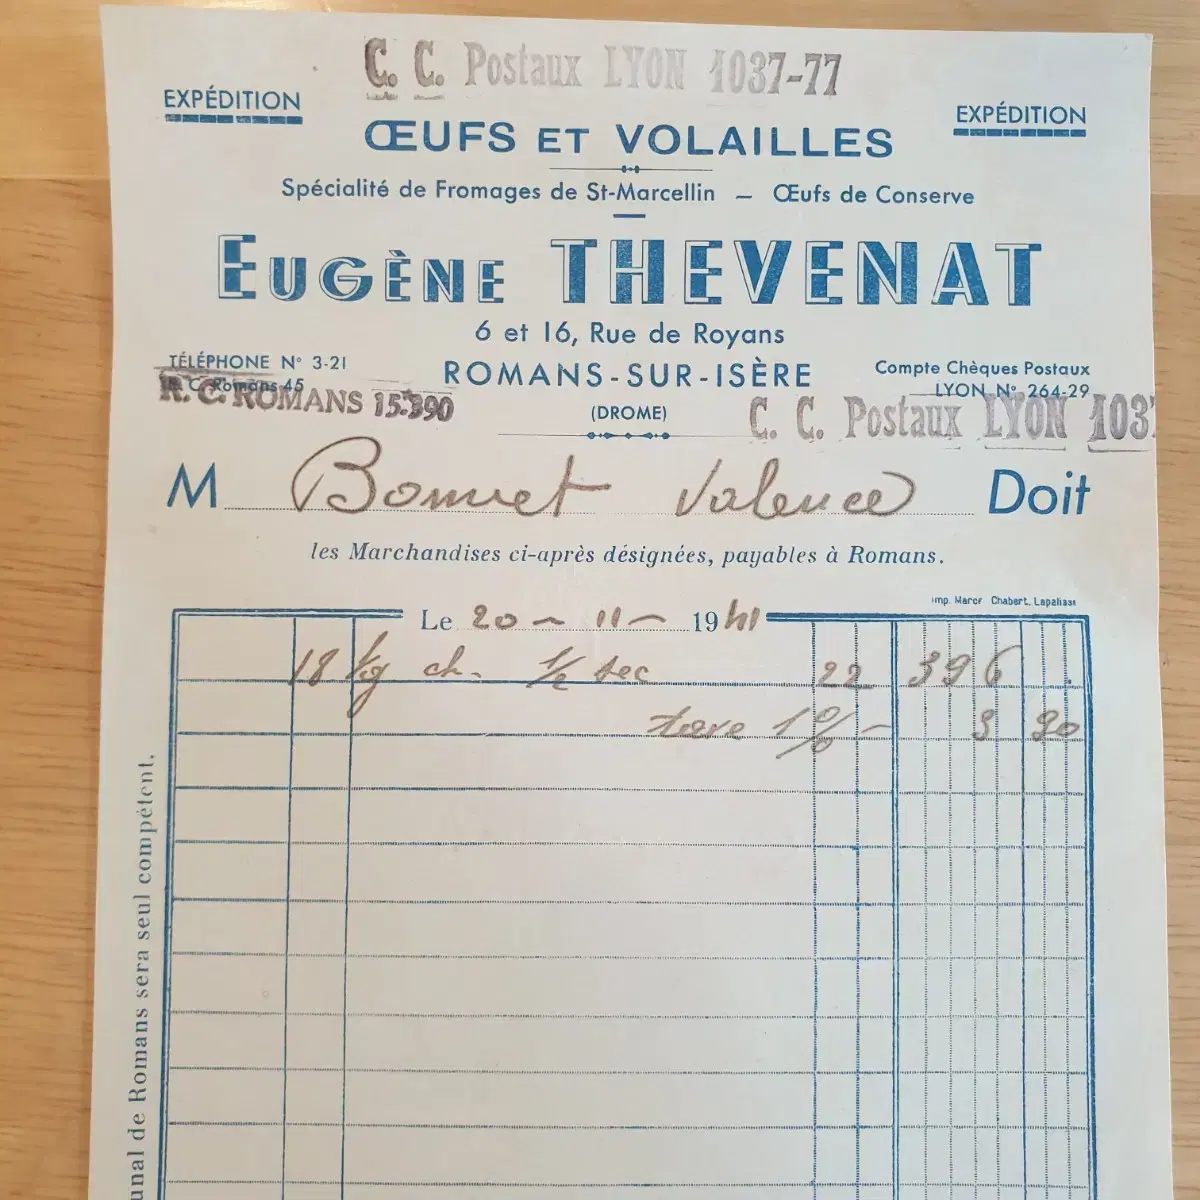 C. C. Postaux LYON 1037-77
EXPÉDITION
EXPÉDITION
ŒUFS ET VOLAILLES
Spécialité de Fromages de St-Marcellin — Œufs de Conserve
EUGÈNE THEVENAT
6 et 16, Rue de Royans
TÉLÉPHONE N° 3-21
ROMANS-SUR-ISÈRE
Compte Chèques Postaux
R. C. Romans 45
LYON N° 264-29
R. C. ROMANS 15.390
(DROME)
C. C. Postaux LYON 103
M Bonnet Valence Doit
les Marchandises ci-après désignées, payables à Romans.
Imp. Marcr Chabert, Lapalisse
Le 20 - 11 - 1941
18 kg ch. 1/2 sec 22 396 .
taxe 1% - 3 90
unal de Romans sera seul compétent.